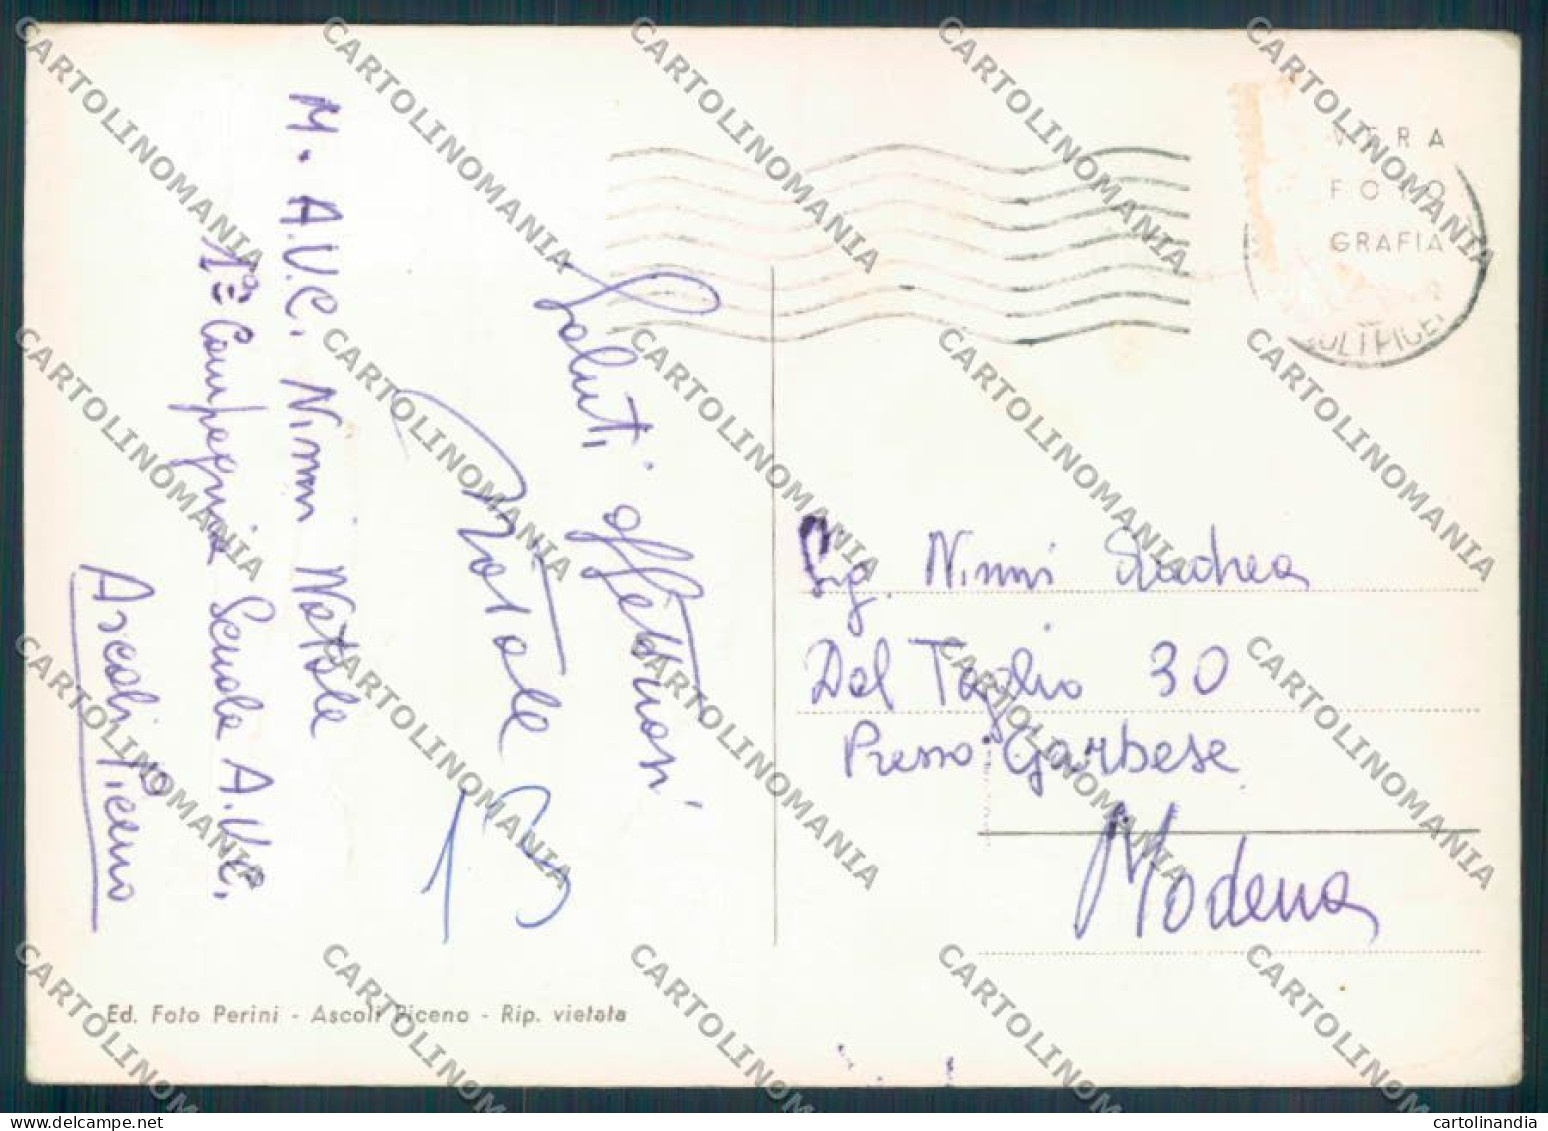 M. A.U.C. Ninni Natale
1ª Compagnia Scuola A.U.C.
Ascoli Piceno
Saluti affettuosi
Natale
VERA
FOTO
GRAFIA
Sig. Ninni Andrea
Dal Taglio 30
Presso Garbese
Modena
Ed. Foto Perini - Ascoli Piceno - Rip. vietata
CARTOLINOMANIA
cartolinandia